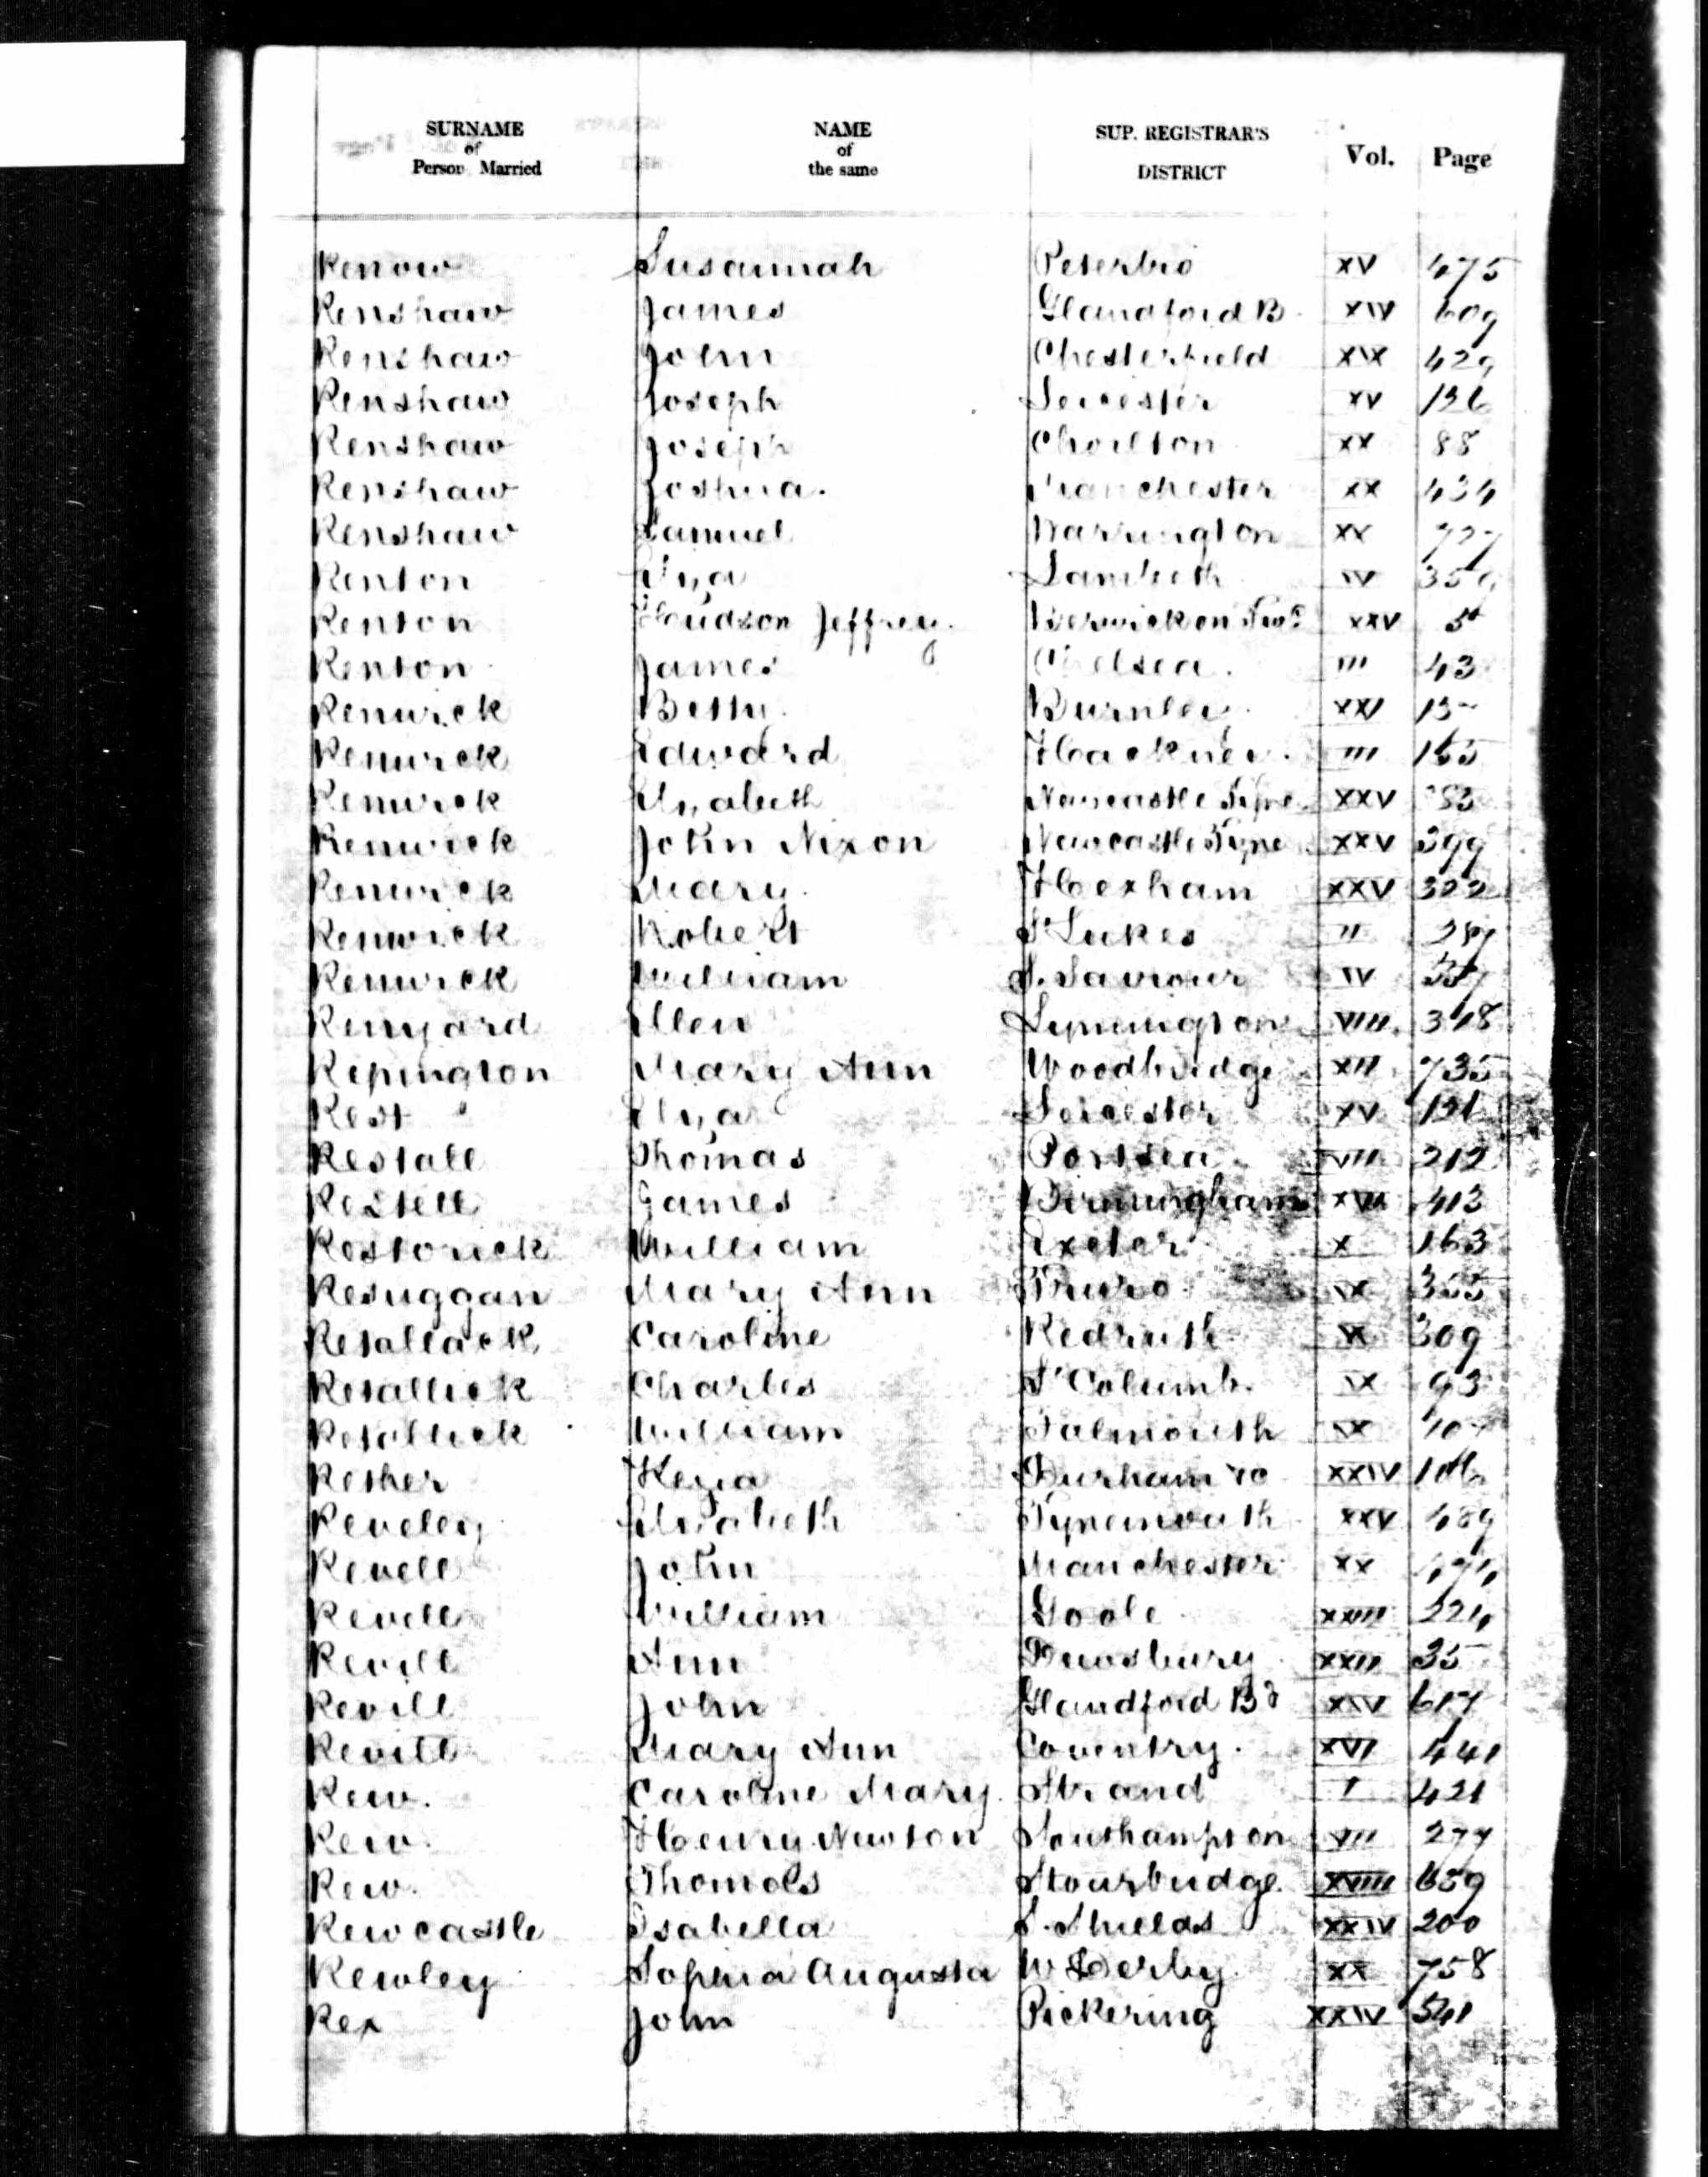 SURNAME of Person Married NAME of the same SUP. REGISTRAR'S DISTRICT Vol. Page
Renow Susannah Peterbro XV 475
Renshaw James Glandford B XIV 609
Renshaw John Chesterfield XIX 429
Renshaw Joseph Leicester XV 126
Renshaw Joseph Chorlton XX 88
Renshaw Joshua. Manchester XX 434
Renshaw Samuel Warrington XX 727
Renton Eliza Lambeth IV
Renton Hudson Jeffrey. Berwick on Twd XXV 5
Renton James Chelsea. III 43
Renwick Betsy. Burnley. XXI
Renwick Edward Hackney. III 155
Renwick Elizabeth Newcastle Tyne XXV
Renwick John Nixon Newcastle Tyne XXV 399
Renwick Mary. Hexham XXV 322
Renwick Robert St Lukes II 287
Renwick William S. Saviour IV
Renyard Ellen Lymington VIII 318
Repington Mary Ann Woodbridge XII 735
Rest Eliza Leicester XV 121
Restall Thomas Portsea VII 212
Restell James Birmingham XVI 413
Restorick William Exeter X 163
Resuggan Mary Ann Truro IX 355
Retallack Caroline Redruth IX 309
Retallick Charles St Columb. IX 93
Retallick William Falmouth IX
Rether Kezia Durham &c XXIV
Reveley Elizabeth Tynemouth XXV 489
Revell John Manchester XX
Revell William Goole XXIII 224
Revill Ann Dewsbury XXII 35
Revill John Glandford Bd XIV 617
Revill Mary Ann Coventry. XVI 441
Rew. Caroline Mary. Strand I 421
Rew. Henry Newton Southampton VII 277
Rew. Thomas Stourbridge. XVIII 659
Rewcastle Isabella S. Shields XXIV 200
Rewley Sophia Augusta W Derby. XX 758
Rex John Pickering XXIV 541